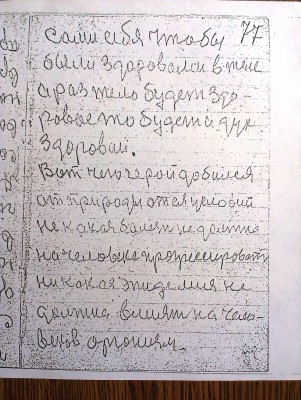 сами себя чтобы 77
были здоровами в теле
а раз тело будет здо-
ровае то будет и дух
здоровай.
Вот чего герой добился
от природы от ея условий
не какая болезн не должна
на человека прогрессировать
ни какая эпидемия не
должна влият на чело-
века организм.